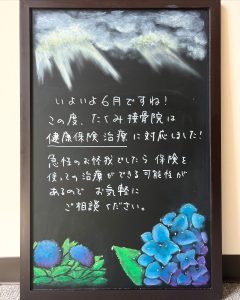 いよいよ6月ですね!
この度、たくみ接骨院は
健康保険治療に対応しました!
急性のお怪我でしたら保険を
使っての治療ができる可能性が
あるので お気軽に
ご相談ください。